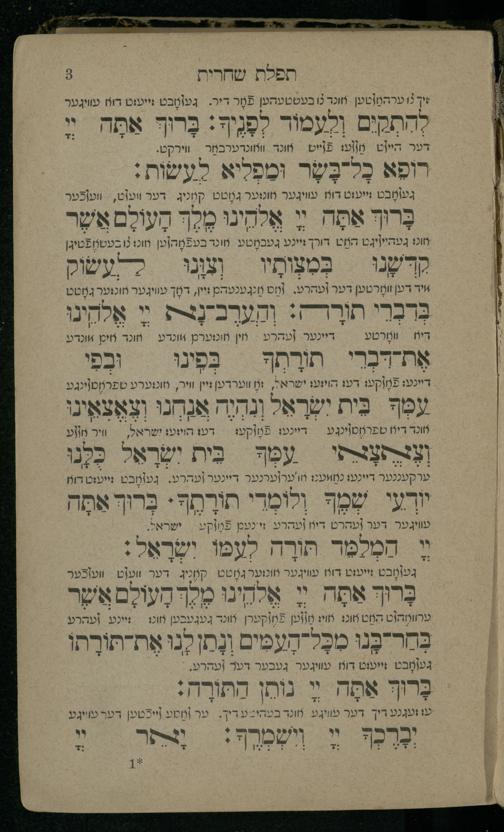 3 תפלת שחרית
זיך צו ערהאַלטען אונד צו בעשטעהען פֿאָר דיר. געלאָבט זייעסט דוא עוויגער
לְהִתְקַיֵּם וְלַעֲמוֹד לְפָנֶיךָ: בָּרוּךְ אַתָּה יְיָ
דער היילט אַללעס פֿלייש אונד וואונדערבאַר ווירקט.
רוֹפֵא כָל־בָּשָׂר וּמַפְלִיא לַעֲשׂוֹת:
געלאָבט זייעסט דוא עוויגער אונזער גאָטט קאָניג דער וועלט, וועלכער
בָּרוּךְ אַתָּה יְיָ אֱלֹהֵינוּ מֶלֶךְ הָעוֹלָם אֲשֶׁר
אונז געהייליגט האַט דורך זיינע געבאָטע אונד בעפֿאָהלען אונז צו בעשעפֿטיגען
קִדְּשָׁנוּ בְּמִצְוֹתָיו וְצִוָּנוּ לַעֲסוֹק
מיט דען וואָרטען דער לעהרע.
בְּדִבְרֵי תוֹרָה: וְהַעֲרֶב־נָא יְיָ אֱלֹהֵינוּ
דיא וואָרטע דיינער לעהרע אין אונזערם מונדע אונד אים מונדע
אֶת־דִּבְרֵי תוֹרָתְךָ בְּפִינוּ וּבְפִי
דיינעס פֿאָלקעס דעס הויזעס ישראל,
עַמְּךָ בֵּית יִשְׂרָאֵל וְנִהְיֶה אֲנַחְנוּ וְצֶאֱצָאֵינוּ
אונד דיא שפּראָסלינגע דיינעס פֿאָלקעס דעס הויזעס ישראל, וויר אַללע
וְצֶאֱצָאֵי עַמְּךָ בֵּית יִשְׂרָאֵל כֻּלָּנוּ
ערקעננער דיינעס נאַמענס אונד לערנער דיינער לעהרע. געלאָבט זייעסט דוא
יוֹדְעֵי שְׁמֶךָ וְלוֹמְדֵי תוֹרָתֶךָ. בָּרוּךְ אַתָּה
עוויגער דער לעהרט דיא לעהרע זיינעם פֿאָלקע ישראל.
יְיָ הַמְלַמֵּד תּוֹרָה לְעַמּוֹ יִשְׂרָאֵל:
געלאָבט זייעסט דוא עוויגער אונזער גאָטט קאָניג דער וועלט וועלכער
בָּרוּךְ אַתָּה יְיָ אֱלֹהֵינוּ מֶלֶךְ הָעוֹלָם אֲשֶׁר
ערוואָהלט האַט אונז אויס אַללען פֿאָלקערן אונד געגעבען אונז זיינע לעהרע
בָּחַר־בָּנוּ מִכָּל־הָעַמִּים וְנָתַן לָנוּ אֶת־תּוֹרָתוֹ
געלאָבט זייעסט דוא עוויגער געבער דער לעהרע.
בָּרוּךְ אַתָּה יְיָ נוֹתֵן הַתּוֹרָה:
עס זעגנע דיך דער עוויגע אונד בעהיטע דיך. ער לאַסע לייכטען דער עוויגע
יְבָרֶכְךָ יְיָ וְיִשְׁמְרֶךָ: יָאֵר יְיָ
1*